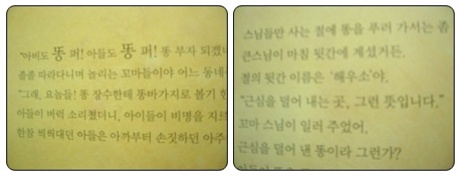 "아비도 똥 퍼! 아들도 똥 퍼! 똥 부자 되겠네
졸졸 따라다니며 놀리는 꼬마들이야 어느 동네
"그래, 요놈들! 똥 장수한테 똥바가지로 볼기 한
아들이 버럭 소리쳤더니, 아이들이 비명을 지르
한참 씩씩대던 아들은 아까부터 손짓하던 아주
스님들만 사는 절에 똥을 푸러 가서는 좀
큰스님이 마침 뒷간에 계셨거든.
절의 뒷간 이름은 '해우소'야.
"근심을 덜어 내는 곳, 그런 뜻입니다."
꼬마 스님이 일러 주었어.
근심을 덜어 낸 똥이라 그런가?